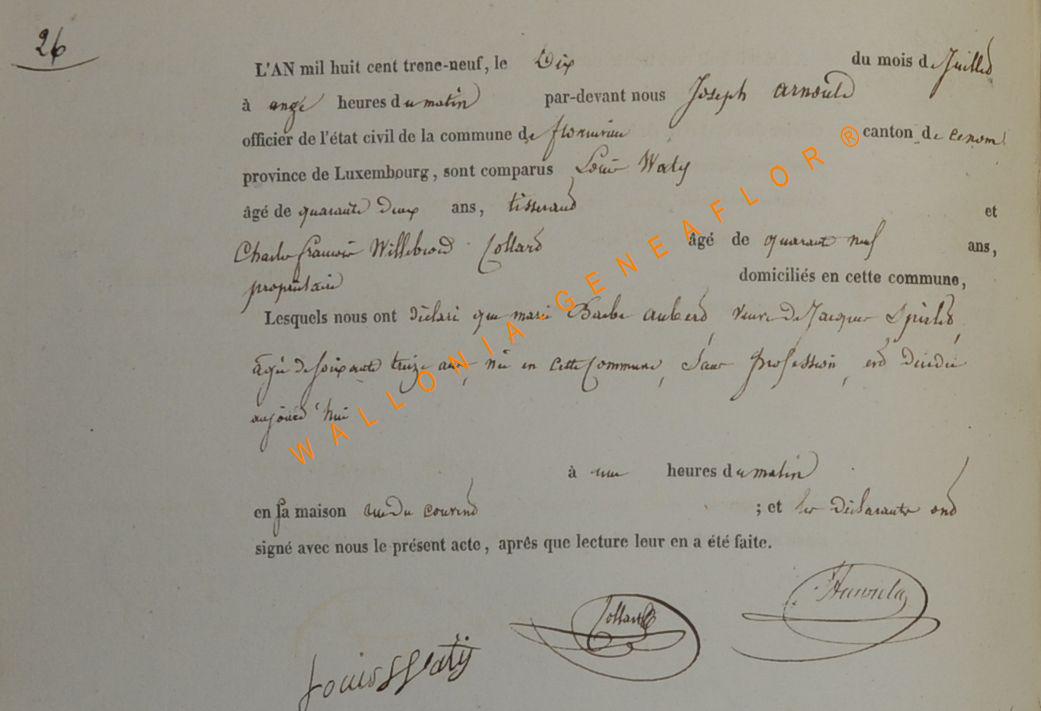 26
L'AN mil huit cent trente-neuf, le Dix du mois de Juillet
à onze heures du matin par-devant nous Joseph arnould
officier de l'état civil de la commune de florenville canton de ce nom
province de Luxembourg, sont comparus Louis Waty
âgé de quarante deux ans, tisserand et
Charles françois Willebrord Collard âgé de quarante neuf ans,
propriétaire domiciliés en cette commune,
Lesquels nous ont déclaré que marie Barbe aubert veuve de Jacques
âgée de soixante treize ans, née en cette Commune, sans profession, est décédée
aujourd'hui
à une heures du matin
en sa maison rue du couvent ; et les déclarants ont
signé avec nous le présent acte, après que lecture leur en a été faite.
Louis Waty Collard Arnould
WALLONIA-GENEAFLOR®